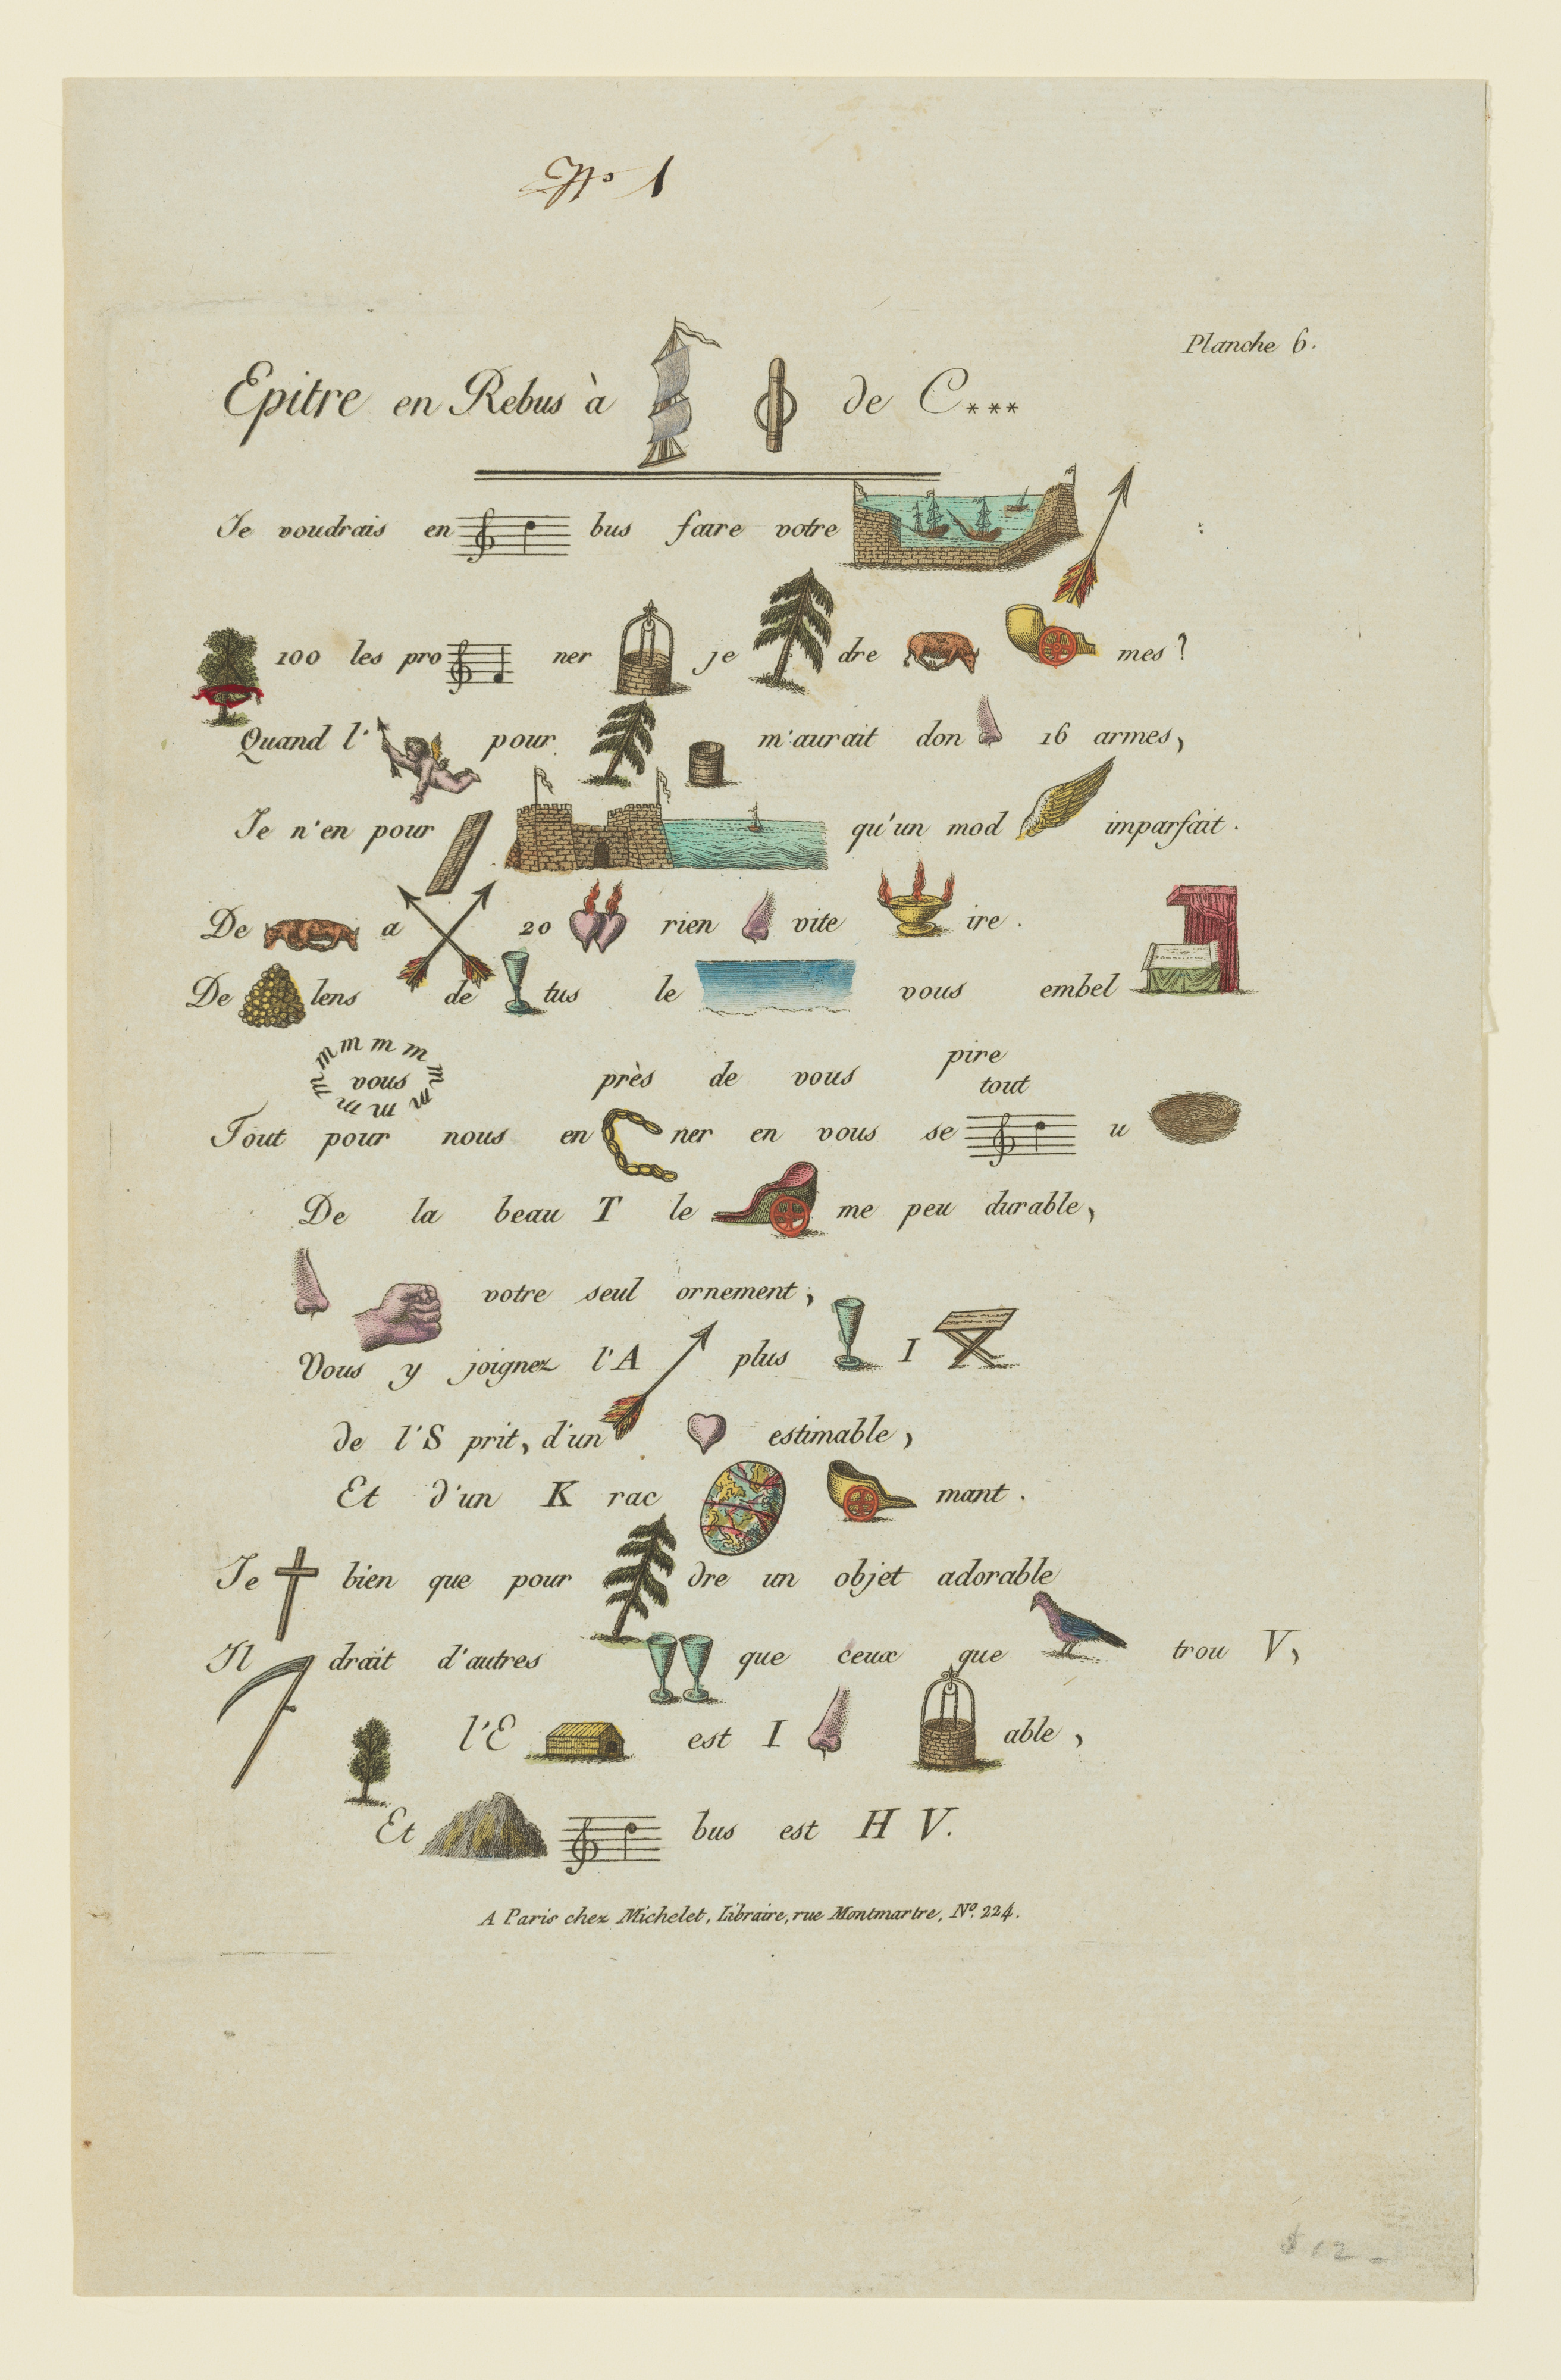 Nº 1
Planche 6.
Epitre en Rebus à de C***
Je voudrais en bus faire votre :
100 les pro ner je dre mes?
Quand l' pour m'aurait don 16 armes,
Je n'en pour qu'un mod imparfait.
De a 20 rien vite ire.
De lens de tus le vous embel
m m m m m m m m m
vous près de vous pire
tout
Tout pour nous en ner en vous se u
De la beau T le me peu durable,
votre seul ornement,
Vous y joignez l'A plus I
de l'S prit, d'un estimable,
Et d'un K rac mant.
Je bien que pour dre un objet adorable
Il drait d'autres que ceux que trou V,
l'E est I able,
Et bus est H V.
A Paris chez Michelet, Libraire, rue Montmartre, Nº. 224.